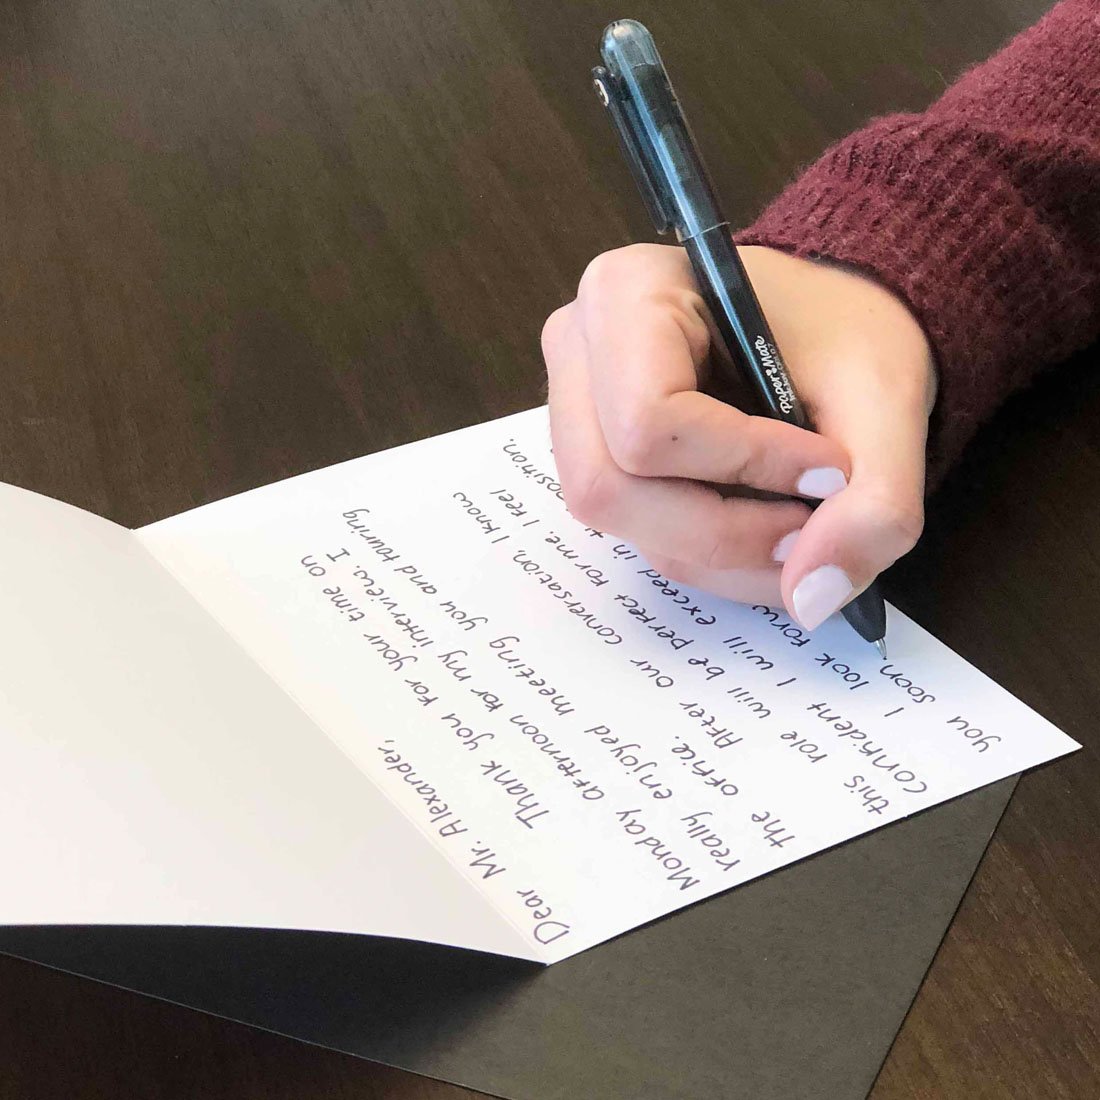 Dear Mr. Alexander,
Thank you for your time on
Monday afternoon for my interview. I
really enjoyed meeting you and touring
the office. After our conversation, I know
this role will be perfect for me. I feel
confident I will exceed in position.
I look
you soon
Paper Mate